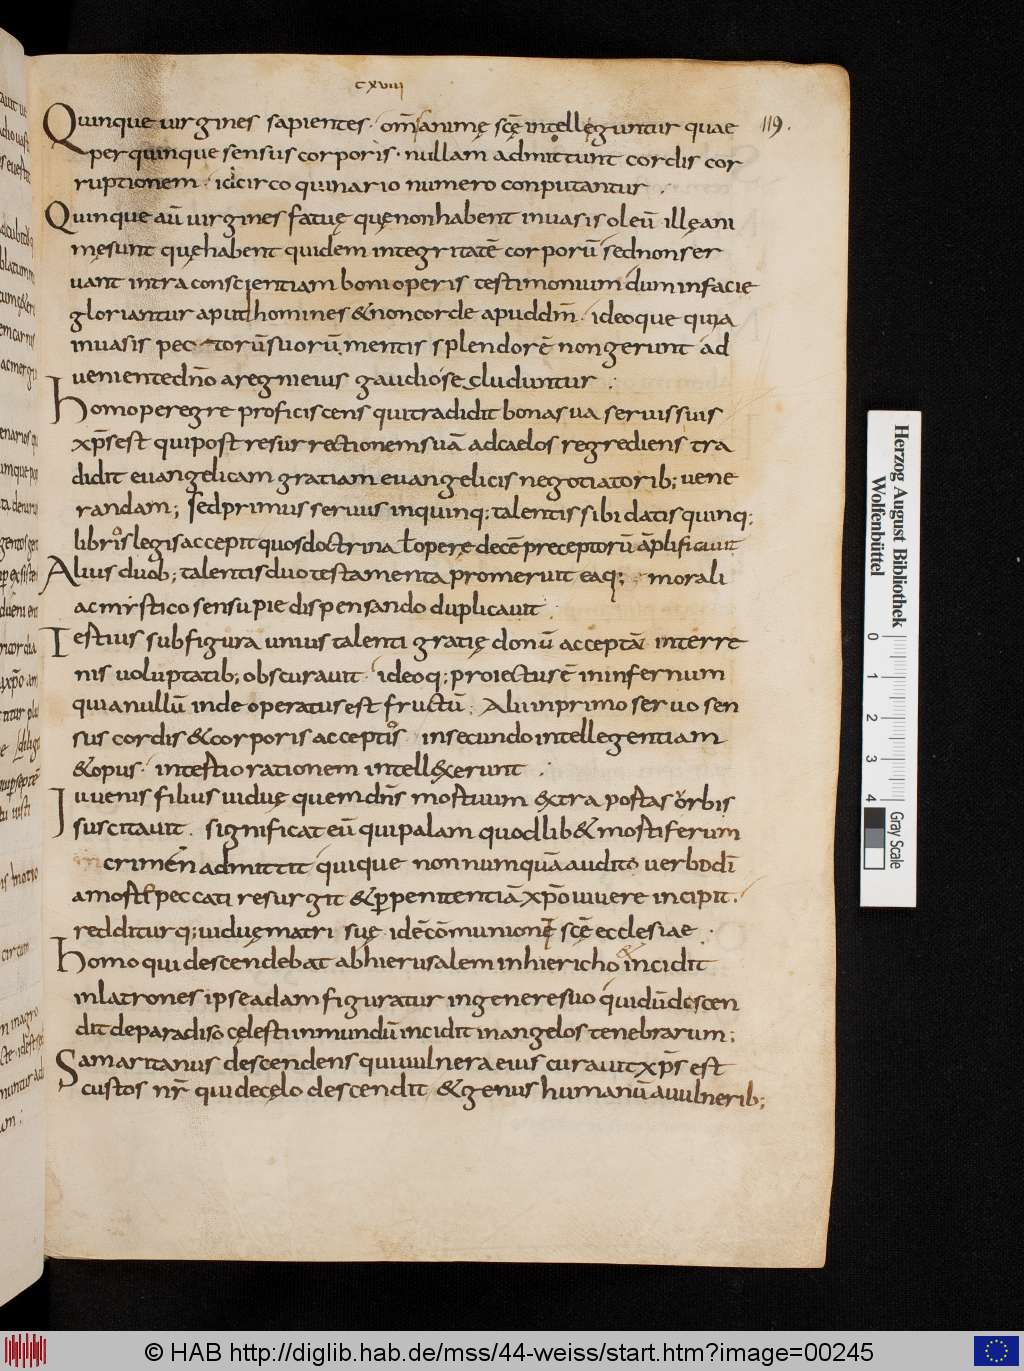 cxviiii
119.
Quinque uirgines sapientes · om̄s animę scę̄ intellęguntur quae
per quinque sensus corporis · nullam admittunt cordis cor
ruptionem · idcirco quinario numero conputantur .
Quinque aū uirgines fatuę quę non habent in uasis oleū · illę ani
mę sunt quę habent quidem integritatē corporū sed non ser
uant intra conscientiam boni operis testimonium dum in facie
gloriantur aput homines & non corde apud dm̄ · ideoque quia
in uasis pectorū suorū mentis splendorē non gerunt ad
ueniente dn̄o a regni eius gaudio se cluduntur .
Homo peregre proficiscens qui tradidit bona sua seruis suis
xp̄s est qui post resurrectionem suā ad caelos regrediens tra
didit euangelicam gratiam euangelicis negotiatorib; uene
randam; Sed primus seruus in quinq; talentis sibi datis quinq;
libros legis accepit quos doctrina ł opere decē preceptorū āplificauit
Alius duob; talentis duo testamenta promeruit eaq; morali
ac mistico sensu pie dispensando duplicauit
Iestius sub figura unius talenti gratię donū acceptā in terre
nis uoluptatib; obscurauit · ideoq; proiectus ē in infernum
quia nullū inde operatus est fructū. Alii in primo seruo sen
sus cordis & corporis acceptos in secundo intellegentiam
& opus · in tertio rationem intellexerunt .
Iuuenis filius uiduę quem dn̄s mortuum extra portas orbis
suscitauit . significat eū qui palam quodlib& mortiferum
crimen admittit quique nonnumquā audito uerbo dī
a morte peccati resurgit & per penitentiā xp̄o uiuere incipit .
redditurq; uiduę matri suę · id ē cōmunione scę̄ ecclesiae .
Homo qui descendebat ab hierusalem in hiericho & incidit
in latrones ipse adam figuratur in genere suo qui dū descen
dit de paradiso cęlesti in mundū incidit in angelos tenebrarum;
Samaritanus descendens qui uulnera eius curauit xp̄s est
custos nr̄ qui de cęlo descendit & genus humanū a uulnerib;
Herzog August Bibliothek
Wolfenbüttel
0 1 2 3 4
Gray Scale
© HAB http://diglib.hab.de/mss/44-weiss/start.htm?image=00245